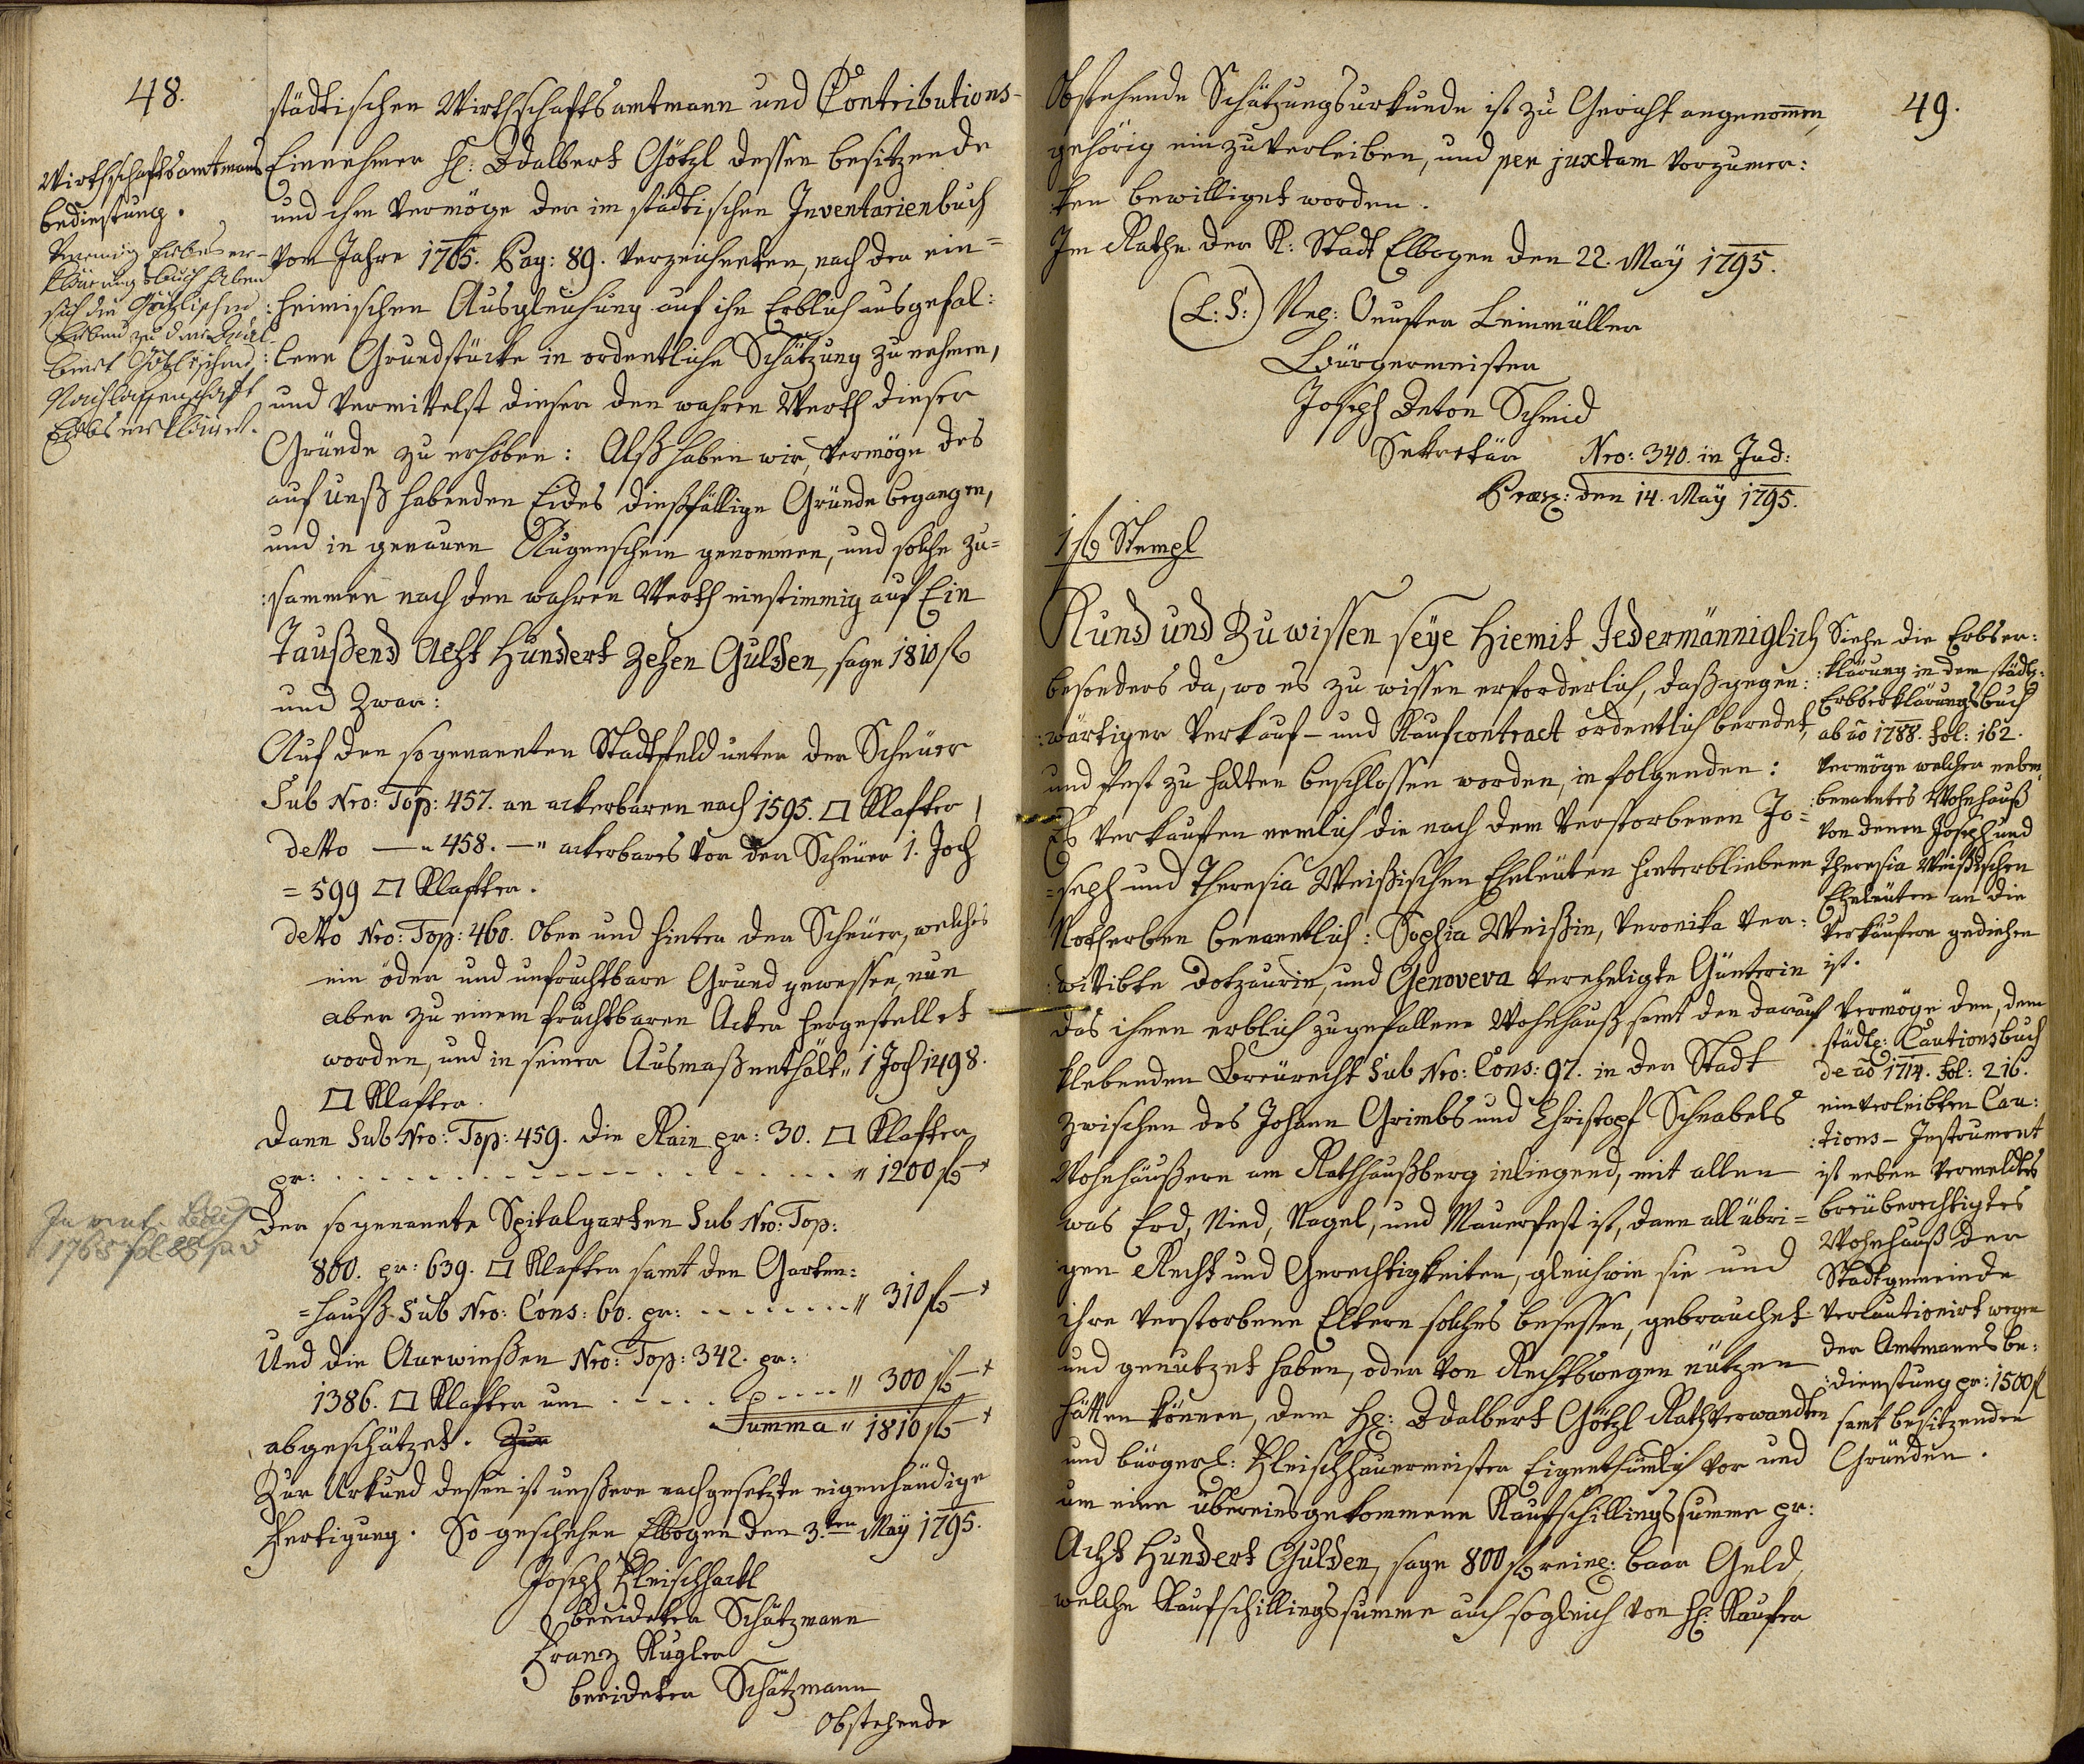 48.
städtischen Wirthschaftsamtmann und Contributions-
Einnehmer H: Adalbert Götzl dessen besitzende
und ihm vermöge der im städtischen Inventarienbuch
vom Jahre 1765. Pag: 89. verzeichneten, nach der ein=
:heimischen Ausgleichung auf ihn Erblich ausgefal:
:lene Grundstücke in ordentliche Schätzung zu nehmen,
und vermittelst dieser den wahren Werth dieser
Gründe zu erhöben: Alß haben wir, vermöge des
auf unß habenden Eides dießfällige Gründe begangen,
und in genauen Augenschein genommen, und solche zu=
:sammen nach den wahren Werth einstimmig auf Ein
Taußend Acht Hundert Zehen Gulden, sage 1810 f
und Zwar:
Auf den sogenannten Stadtfeld unter der Scheuer
Sub Nro: Top: 457. an ackerbaren nach 1595. □ Klafter
detto — " 458. — " ackerbares vor der Scheuer 1. Joch
= 599 □ Klafter.
detto Nro: Top: 460. Ober und hinter der Scheuer, welches
ein öder und unfruchtbare Grund gewessen, nun
aber zu einem fruchtbaren Acker hergestellet
worden, und in seiner Ausmaß enthält " 1 Joch 1498.
□ Klafter.
Dann Sub Nro: Top: 459. die Rain pr: 30. □ Klafter
pr: . . . . . . . . . . " 1200 f —
Der sogenannte Spitalgarten Sub Nro: Top:
800. pr: 639. □ Klafter samt den Garten:
=hauß Sub Nro: Cons: 60. pr: - - - - - " 310 f —
Und die Aurwießen Nro: Top: 342. pr:
1386. □ Klafter um . . . . . " 300 f —
Summa " 1810 f —
abgeschätzet. Zur
Zur Urkund dessen ist unßere nachgesetzte eigenhändige
Fertigung. So geschehen Elbogen den 3.ten May 1795.
Joseph Fleischhackl
beeideter Schätzmann
Franz Kugler
beeideter Schätzmann
Obstehende
Wirthschaftsamtmanns
bedienstung.
Vermög Erbser-
klärungsbuch haben
sich die Götzlischen
Erben zu der Adal
bert Götzlischen
Nachlassenschaft
Erbserkläret.
Invent. Buch
1765 fol 88
49.
Obstehende Schätzungsurkunde ist zu Gericht angenommen,
gehörig einzuverleiben, und per juxtam vorzumer:
:ken bewilliget worden.
Im Rathe der K: Stadt Elbogen den 22. May 1795.
(L: S:) Leinmüller
Bürgermeister
Joseph Anton Schmid
Sekretär
Nro: 340. in Jud:
Praez: den 14. May 1795.
1 f Stempl
Kund und Zu wissen seye Hiemit Jedermänniglich
besonders da, wo es zu wissen erforderlich, daß gegen:
:wärtiger Verkauf- und Kaufcontract ordentlich beredet,
und fest zu halten beschlossen worden, in folgenden:
Es verkauften nemlich die nach dem verstorbenen Jo=
=seph und Theresia Weißischen Eheleuten hinterbliebene
Notherben benanntlich: Sophia Weißin, Veronika ver:
:wittibte Dotzaurin, und Genoveva verehligte Günterin
das ihnen erblich zugefallene Wohnhauß samt den darauf
klebenden Breurecht Sub Nro: Cons: 97. in der Stadt
zwischen des Johann Grimbs und Christoph Schnabels
Wohnhäußern am Rathhaußberg inliegend, mit allen
was Erd, Nied, Nagel, und Mauerfest ist, dann all übri=
gen Recht und Gerechtigkeiten, gleichwie sie und
ihre verstorbene Eltern solches besessen, gebrauchet
und genutzet haben, oder von Rechtswegen nützen
hätten können, dem H: Adalbert Götzl Rathsverwandten
und bürgerl: Fleischhauermeister Eigenthümlich vor und
um eine übereinsgekommene Kaufschillingssumme pr:
Acht Hundert Gulden, sage 800 f reine: baar Geld,
welche Kaufschillingssumme auch sogleich von H: Kaufer
Siehe die Erbser:
:klärung in dem städt:
Erbserklärungsbuch
ab ao 1788. fol: 162.
vermöge welcher neben
:benanntes Wohnhauß
von denen Joseph und
Theresia Weißischen
Eheleuten an die
Verkäufern gediehen
ist.
Vermöge den, dem
städt: Cautionsbuch
de ao 1714. fol: 216.
einverleibten Cau:
:tions-Instrument
ist neben vermeldtes
breuberechtigtes
Wohnhauß der
Stadtgemeinde
vercautionirt wegen
der Amtmanns be:
:dienstung pr: 1500 f
samt besitzenden
Gründen.